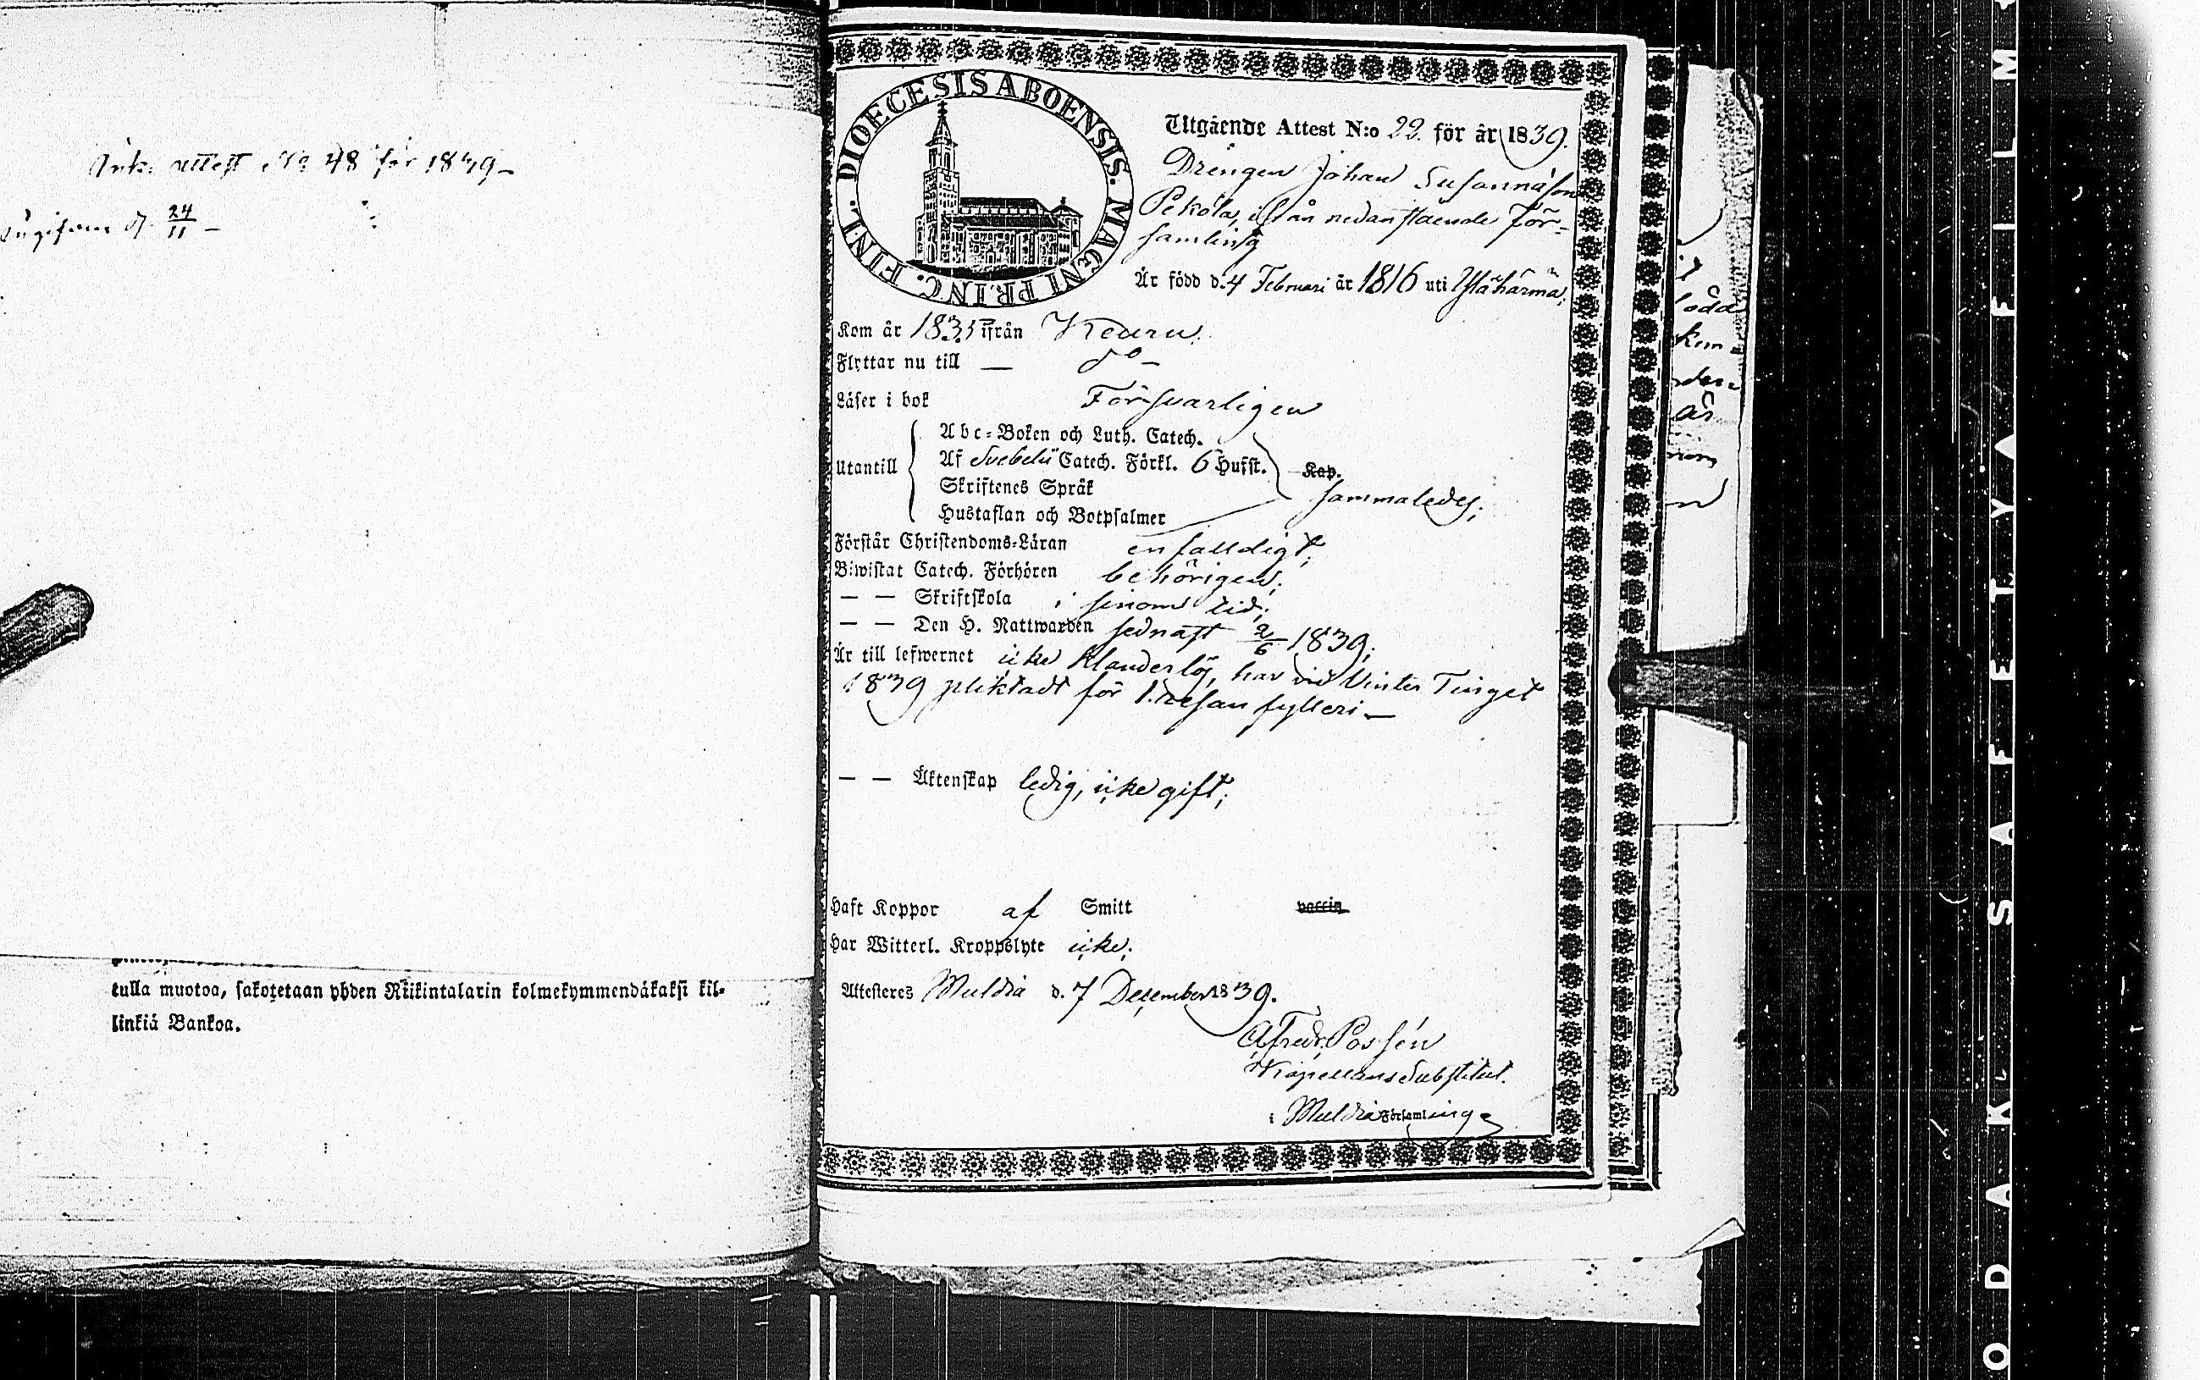 Ank. attest No 48 för 1839 –
d. 24/11 –
tulla muotoa, sakotetaan yhden Riikintalarin kolmekymmendäkaksi kil-
linkiä Bankoa.
DIOECESIS ABOENSIS. MAGNI PRINC. FINL.
Utgående Attest N:o 22. för år 1839.
Drengen Johan Susannason
Pekola, ifrån nedanstående För-
samling
Är född d. 4 Februari år 1816 uti Ylihärmä;
Kom år 1835 ifrån Keuru.
Flyttar nu till — do –
Läser i bok Försvarligen
Abc-Boken och Luth. Catech.
Utantill Af Svebelii Catech. Förkl. 6 Hufst. Kap.
Skriftenes Språk sammaledes;
Hustaflan och Botpsalmer
Förstår Christendoms-Läran enfalldigt;
Biwistat Catech. Förhören behörigen;
— — Skriftskola i sinom tid;
— — Den H. Nattwarden sednast 2/6 1839;
Är till lefwernet icke klanderlös, har vid Vinter Tinget
1839 pliktadt för 1. resan fylleri –
— — Äktenskap ledig, icke gift;
Haft Koppor af Smitt vaccin
Har Witterl. Kroppslyte icke;
Attesteres Muldia d. 7 December 1839.
A Fredr. Possén
Kapellans Substitut.
i Muldia Församling
KODAK SAFETY FILM